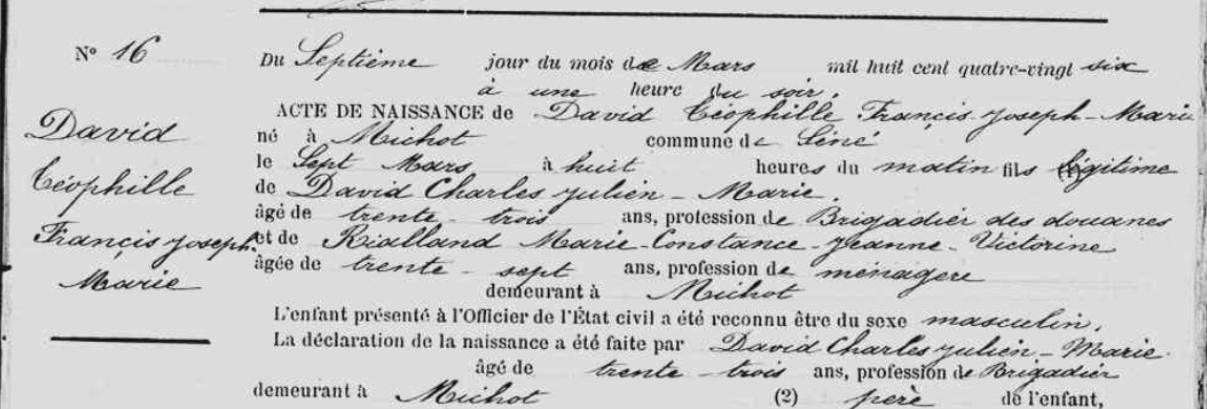 N° 16
David
Céophille
Françis Joseph
Marie
Du Septième jour du mois de Mars mil huit cent quatre-vingt six
à une heure du soir.
ACTE DE NAISSANCE de David Céophille Françis Joseph-Marie
né à Michot commune de Séné
le Sept Mars à huit heures du matin fils légitime
de David Charles Julien-Marie.
âgé de trente-trois ans, profession de Brigadier des douanes
et de Rialland Marie-Constance-Jeanne-Victorine
âgée de trente-sept ans, profession de ménagère
demeurant à Michot
L'enfant présenté à l'Officier de l'État civil a été reconnu être du sexe masculin.
La déclaration de la naissance a été faite par David Charles Julien-Marie.
âgé de trente-trois ans, profession de Brigadier
demeurant à Michot (2) père de l'enfant,